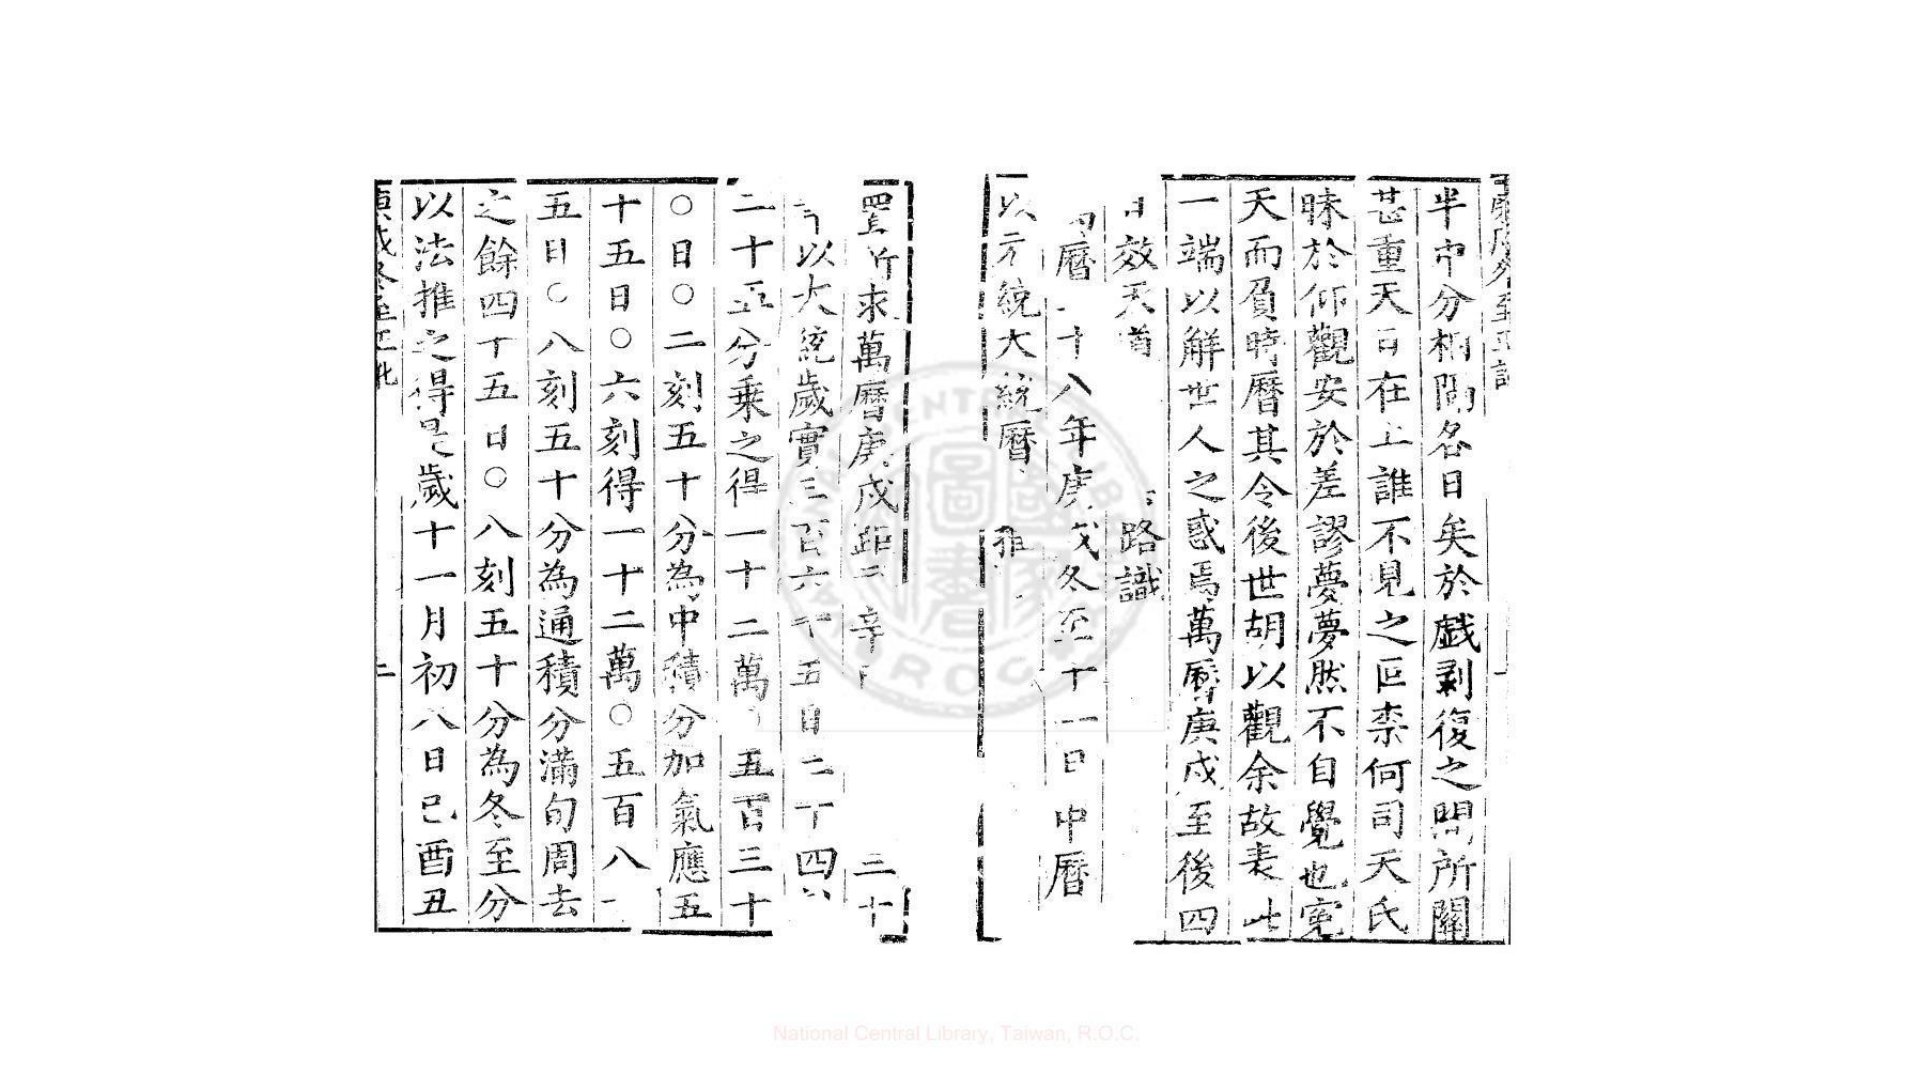 庚戌冬至正訛
半中分相隔各日矣於戲剥復之間所關
甚重天日在上誰不見之叵柰何司天氏
昧於仰觀安於差謬夢夢然不自覺也寃
天而負時曆其令後世胡以觀余故表此
一端以解世人之惑焉萬曆庚戌至後四
日效天道 路識
曆 十八年庚戌冬至十一日中曆
以元統大統曆 推
置所求萬曆庚戌距 辛 三十
以大統歲實三百六十五日二十四
二十五分乘之得一十二萬 五百三十
〇日〇二刻五十分為中積分加氣應五
十五日〇六刻得一十二萬〇五百八十
五日〇八刻五十分為通積分滿旬周去
之餘四十五日〇八刻五十分為冬至分
以法推之得是歲十一月初八日己酉丑
庚戌冬至正訛
二
National Central Library, Taiwan, R.O.C.